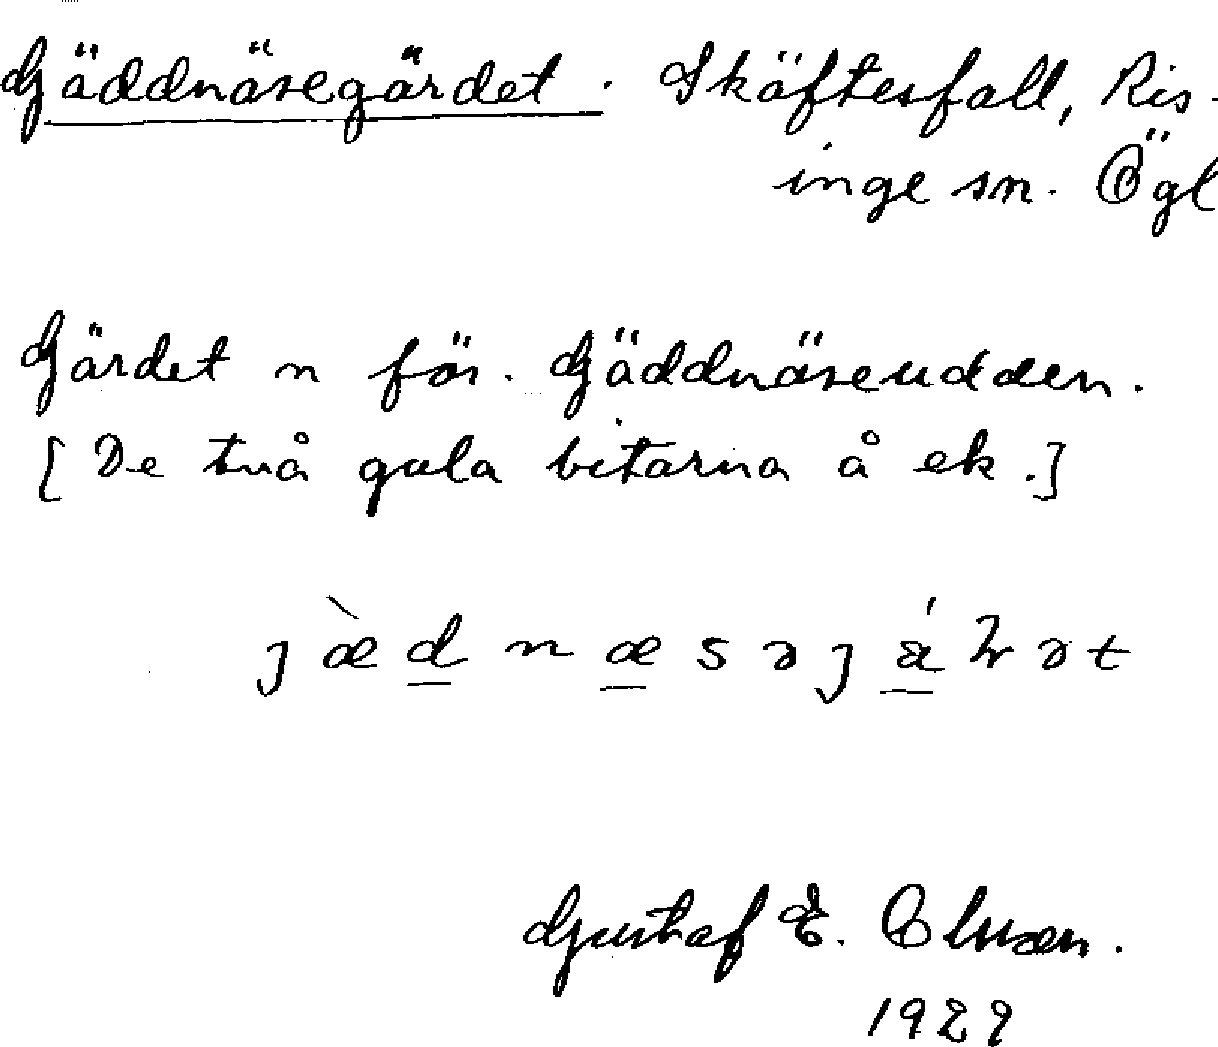 Gäddnäsegärdet. Skäftesfall, Ris-
inge sn. Ögl
Gärdet n för. Gäddnäseudden.
[De två gula bitarna å ek.]
jæ̀d̲næ̲səjǽ̲ƕət
Gustaf E. Olsson.
1929